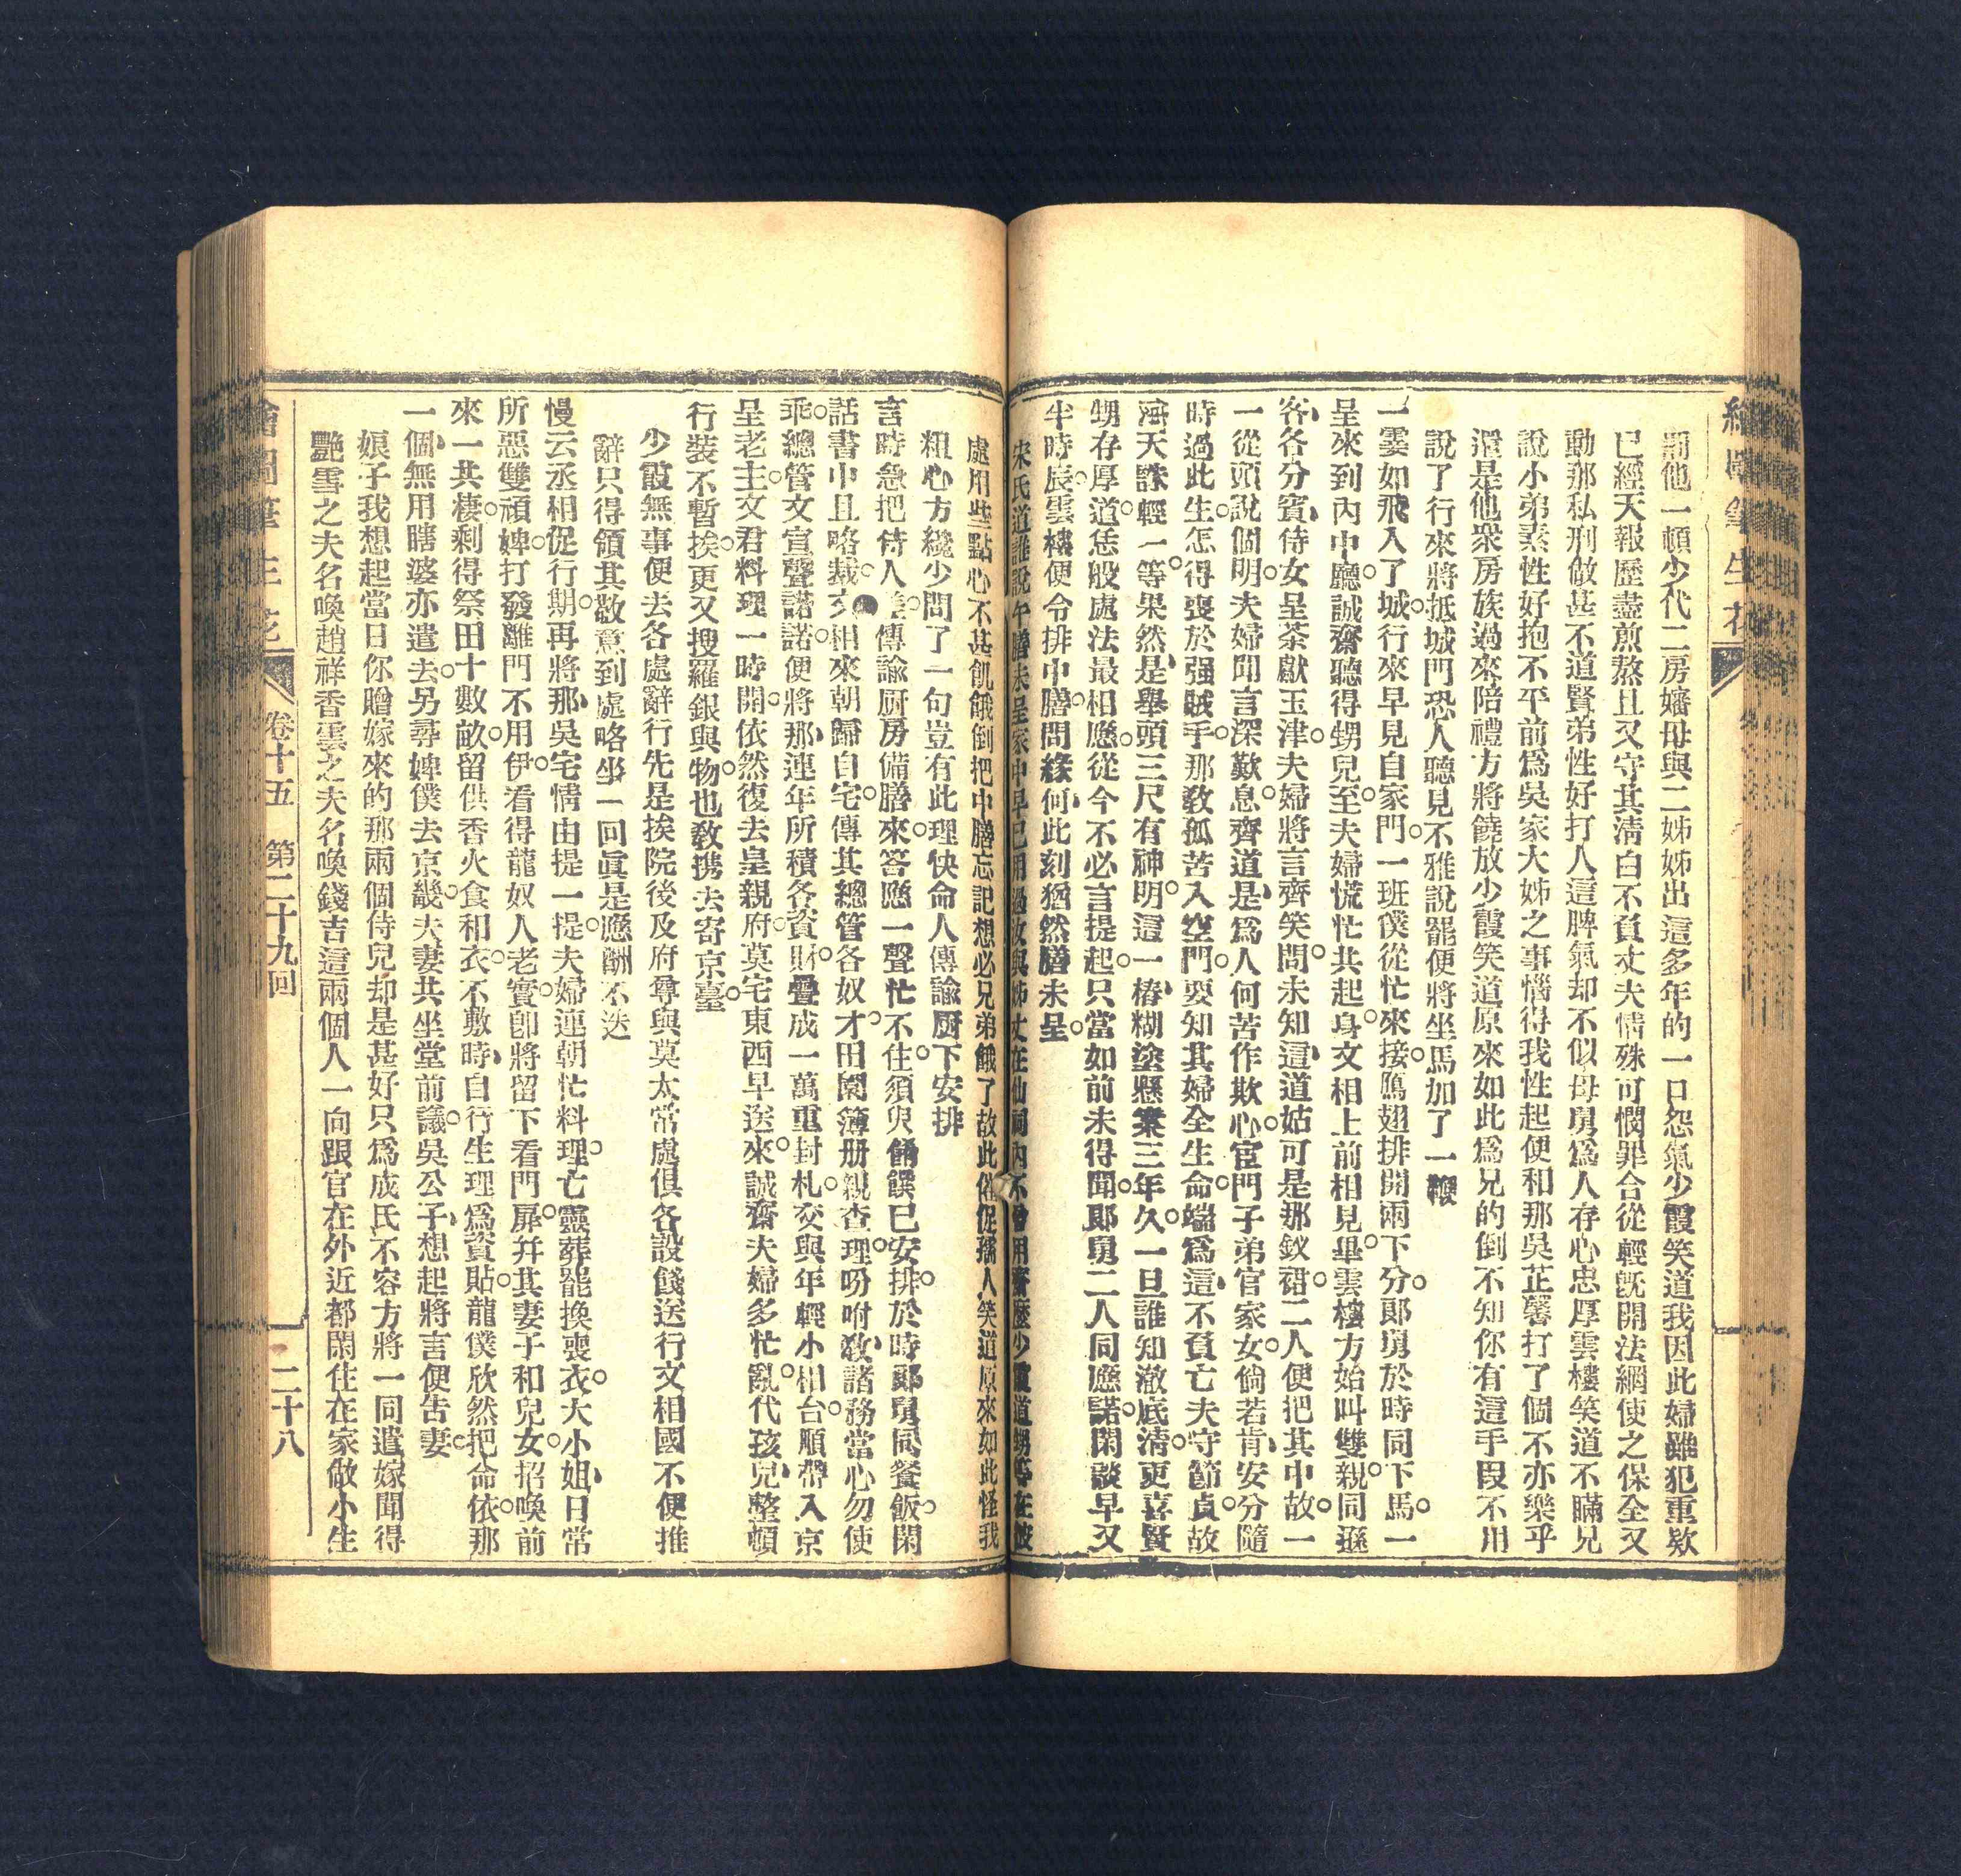 繪圖筆生花
罰他一頓少代二房嬸母與二姊姊出這多年的一口怨氣少霞笑道我因此婦雖犯重欵
已經天報歷盡煎熬且又守其清白不負丈夫情殊可憫罪合從輕旣開法網使之保全又
動那私刑做甚不道賢弟性好打人這脾氣却不似母舅爲人存心忠厚雲樓笑道不瞞兄
說小弟素性好抱不平前爲吳家大姊之事惱得我性起便和那吳芷馨打了個不亦樂乎
還是他衆房族過來陪禮方將饒放少霞笑道原來如此爲兄的倒不知你有這手叚不用
說了行來將抵城門恐人聽見不雅說罷便將坐馬加了一鞭
一霎如飛入了城○行來早見自家門○一班僕從忙來接○鴈翅排開兩下分○郞舅於時同下馬○一
呈來到內中廳○誠齋聽得甥兒至○夫婦慌忙共起身○文相上前相見畢○雲樓方始叫雙親○同遜
客、各分賓、侍女呈茶獻玉津○夫婦將言齊笑問○未知這、道姑可是那釵裙○二人便把其中故○一
一從頭說個明○夫婦聞言深歎息○齊道是、爲人何苦作欺心○宦門子弟官家女○倘若肯、安分隨
時過此生○怎得喪於强賊手○那敎孤苦入空門○要知其婦全生命○端爲這、不負亡夫守節貞○故
海天誅輕一等○果然是、舉頭三尺有神明○這一樁、糊塗懸案三年久○一旦誰知澈底清○更喜賢
甥存厚道○恁般處法最相應○從今不必言提起○只當如前未得聞○郞舅二人同應諾○閑談早又
半時辰○雲樓便令排中膳○問緣何、此刻猶然膳未呈○
宋氏道誰說午膳未呈家中早已用過故與姊丈在仙祠內不曾用齋麽少霞道甥等在彼
處用些點心不甚飢餓倒把中膳忘記想必兄弟餓了故此催促孺人笑道原來如此怪我
粗心方纔少問了一句豈有此理快命人傳諭厨下安排
言時急把侍人差○傳諭厨房備膳來○答應一聲忙不住○須臾餚饌已安排○於時郞舅同餐飯○閑
話書中且略裁○文相來朝歸自宅○傳其總管各奴才○田園簿册親查理○吩咐敎、諸務當心勿使
乖○總管文宣聲諾諾○便將那、連年所積各資財○疊成一萬重封札○交與年輕小相台○順帶入京
呈老主○文君料理一時開○依然復去皇親府○莫宅東西早送來○誠齋夫婦多忙亂○代孩兒、整頓
行裝不暫挨○更又搜羅銀與物○也敎携去寄京臺○
少霞無事便去各處辭行先是挨院後及府尊與莫太常處俱各設餞送行文相國不便推
辭只得領其敬意到處略坐一回眞是應酬不迭
慢云丞相促行期○再將那、吳宅情由提一提○夫婦連朝忙料理○亡靈葬罷換喪衣○大小姐、日常
所惡雙頑婢○打發離門不用伊○看得龍奴人老實○卽將留下看門扉○幷其妻子和兒女○招喚前
來一共棲○剩得祭田十數畝○留供香火食和衣○不敷時、自行生理爲資貼○龍僕欣然把命依○那
一個、無用瞎婆亦遣去○另尋婢僕去京畿○夫妻共坐堂前議○吳公子、想起將言便告妻○
娘子我想起當日你贈嫁來的那兩個侍兒却是甚好只爲成氏不容方將一同遣嫁聞得
艷雪之夫名喚趙祥香雲之夫名喚錢吉這兩個人一向跟官在外近都閑住在家做小生
繪圖筆生花 卷十五 第二十九回 二十八